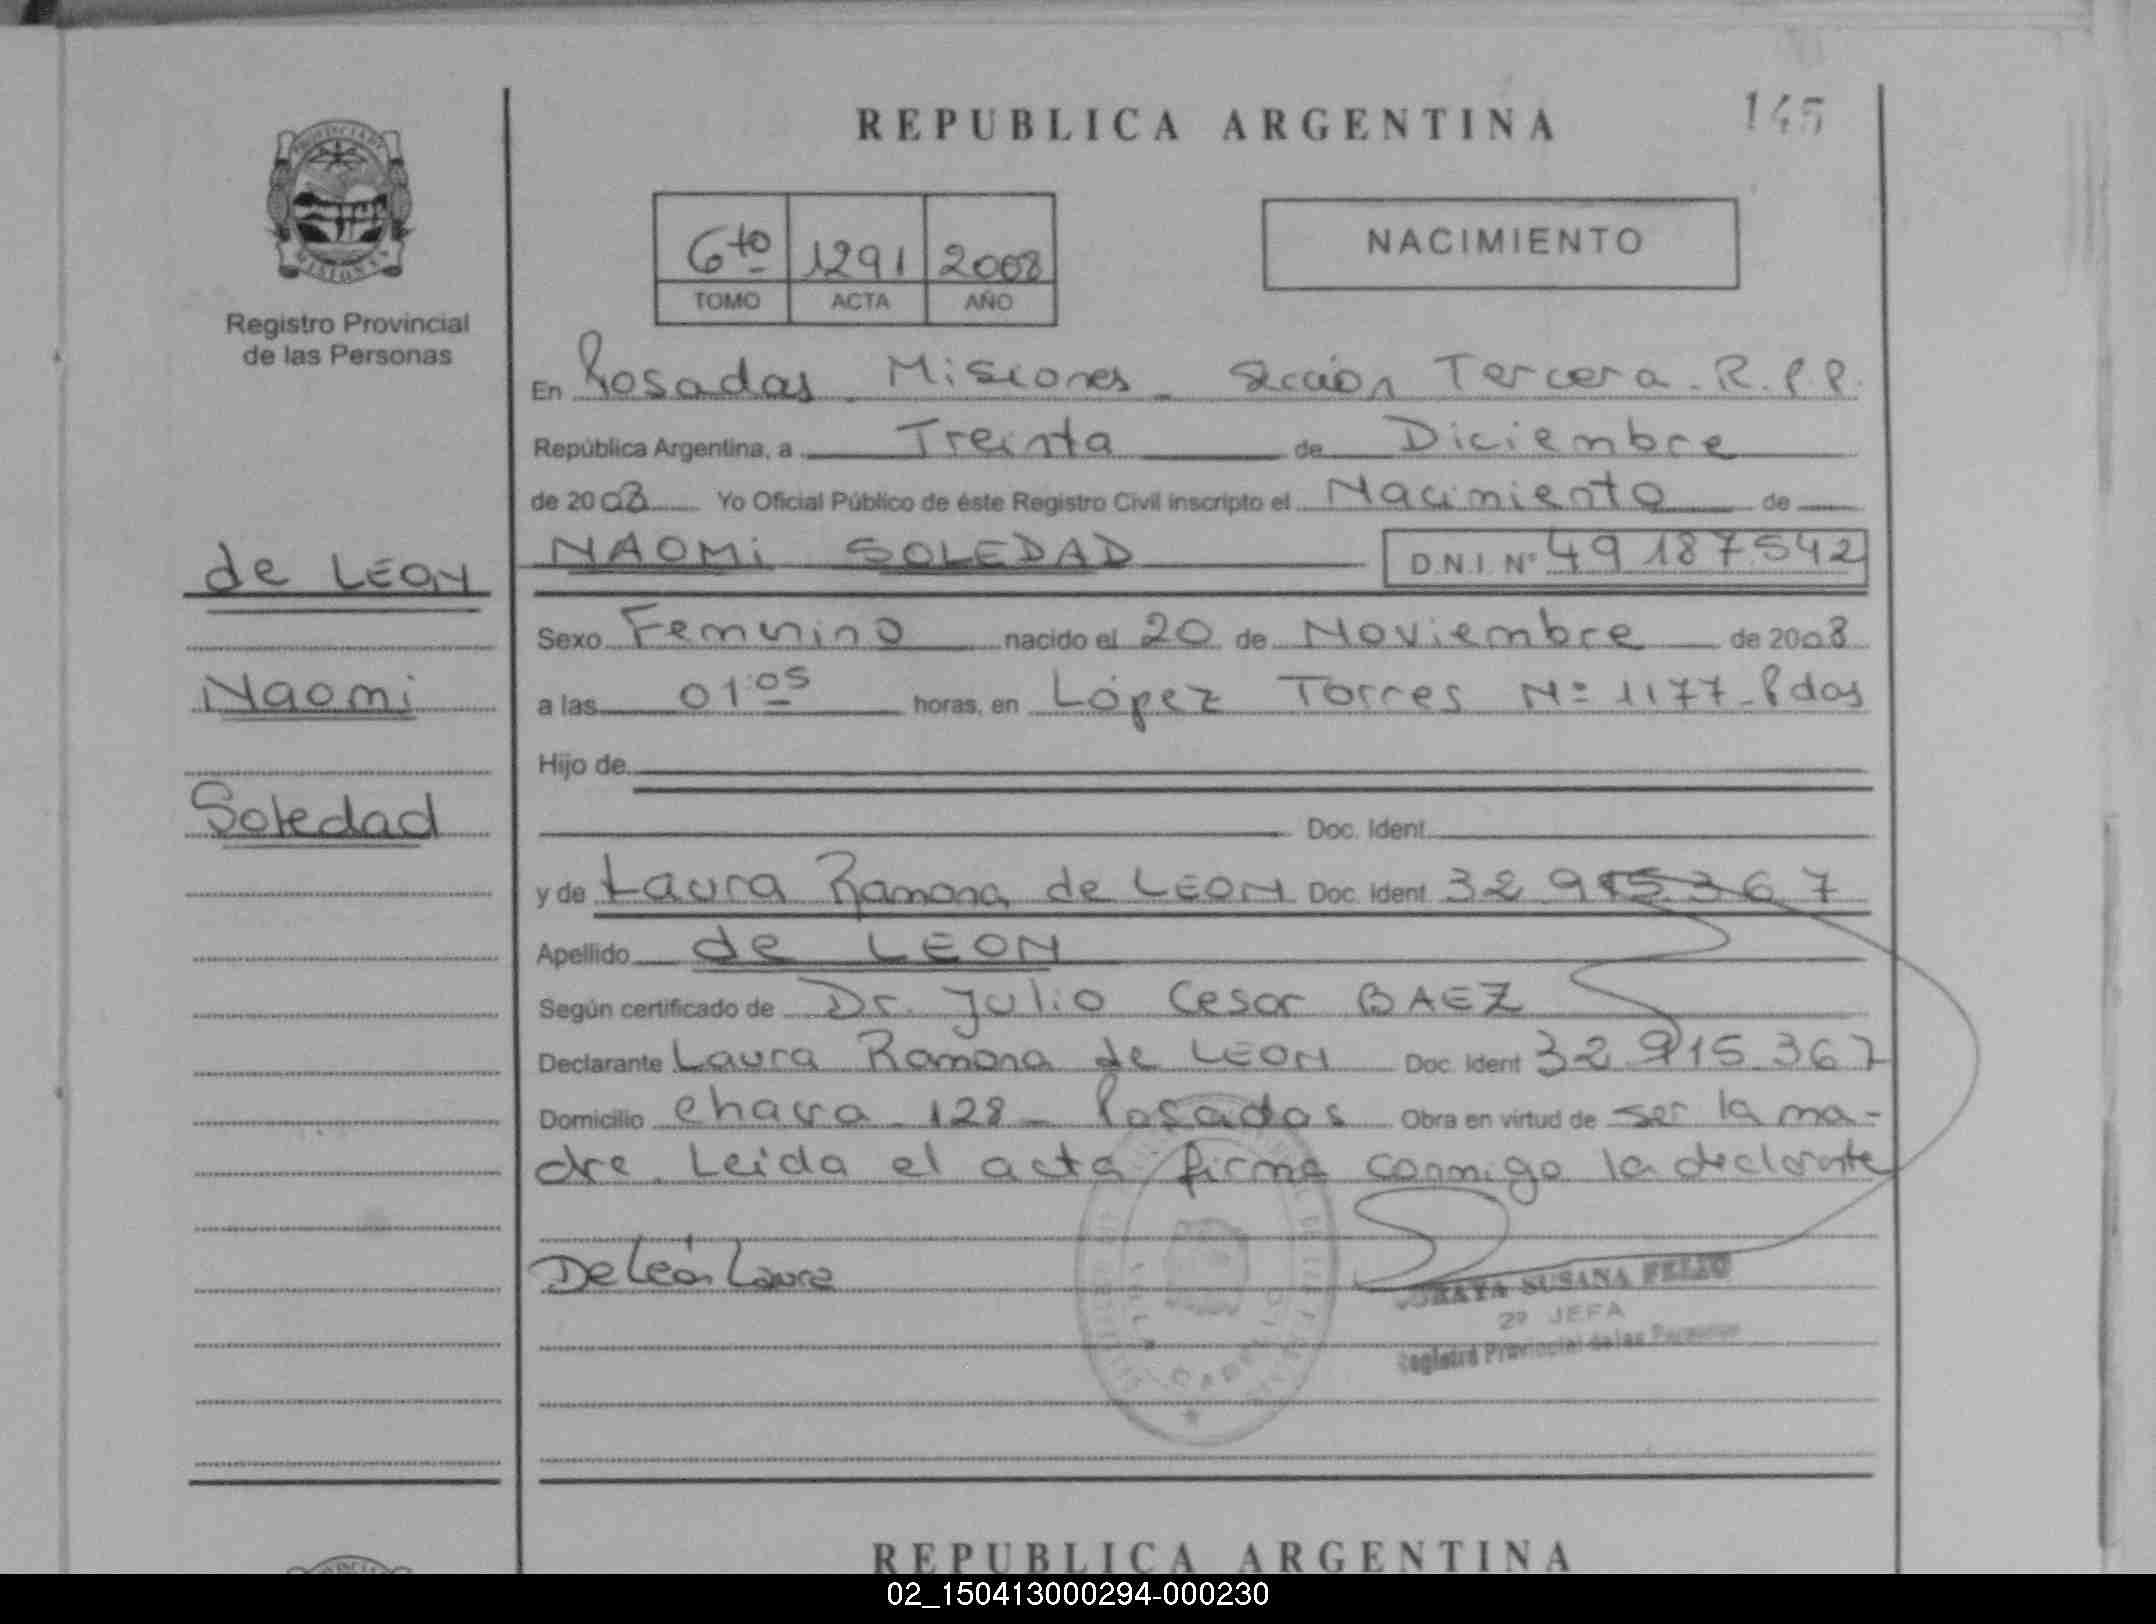 REPUBLICA ARGENTINA
145
PROVINCIA DE
MISIONES
Registro Provincial
de las Personas
6to 1291 2008
TOMO ACTA AÑO
NACIMIENTO
En Posadas - Misiones - Sección Tercera. R.P.P.
República Argentina, a Treinta de Diciembre
de 2008 Yo Oficial Público de éste Registro Civil inscripto el Nacimiento de
NAOMi SOLEDAD D.N.I. Nº 49 187.542
de LEON
Sexo Femenino nacido el 20 de Noviembre de 2008
Naomi
a las 01:05 horas, en López Torres Nº 1177 - Pdas
Hijo de
Soledad
Doc. Ident.
y de Laura Ramona de LEON Doc. Ident. 32 915.367
Apellido de LEON
Según certificado de Dr. Julio Cesar BAEZ
Declarante Laura Ramona de LEON Doc. Ident 32 915.367
Domicilio chacra 128 - Posadas Obra en virtud de ser la ma-
dre. Leida el acta firma conmigo la declarante
De León Laura
SUSANA
2º JEFA
Registro Provincial de las Personas
REPUBLICA ARGENTINA
02_150413000294-000230